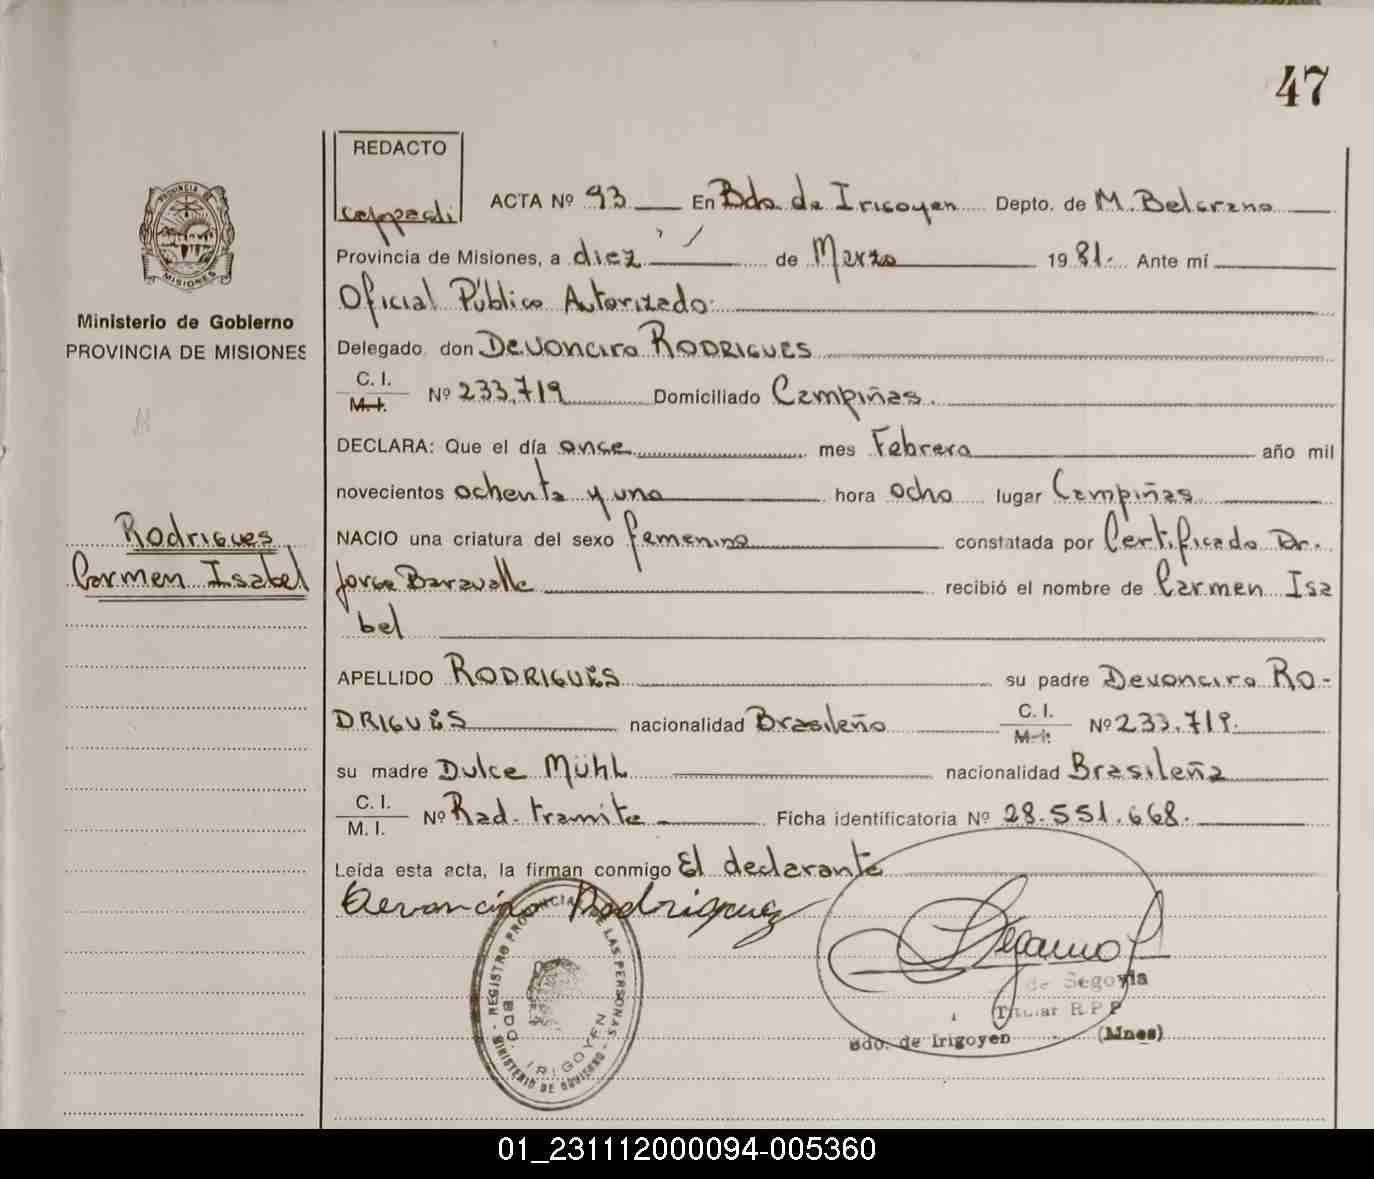 47
REDACTO
ACTA Nº 93 En Bdo. de Irigoyen Depto. de M. Belgrano
Provincia de Misiones, a diez de Marzo 1981. Ante mí
Oficial Público Autorizado.
Delegado, don Devonciro RODRIGUES
C. I.
M. I. Nº 233.719 Domiciliado Campiñas.
DECLARA: Que el día once mes Febrero año mil
novecientos ochenta y uno hora ocho lugar Campiñas
NACIO una criatura del sexo femenino constatada por Certificado Dr.
Jorge Baravalle recibió el nombre de Carmen Isa
bel
APELLIDO RODRIGUES su padre Devonciro RO-
DRIGUES nacionalidad Brasileño C. I.
M. I. Nº 233.719.
su madre Dulce Mühl nacionalidad Brasileña
C. I.
M. I. Nº Rad. tramite Ficha identificatoria Nº 28.551.668.
Leída esta acta, la firman conmigo El declarante
Devonciro Rodriguez
PROVINCIA DE
MISIONES
Ministerio de Gobierno
PROVINCIA DE MISIONES
Rodrigues
Carmen Isabel
REGISTRO PROVINCIAL DE LAS PERSONAS
MINISTERIO DE GOBIERNO
BDO. IRIGOYEN
de Segovia
Titular R P P
Bdo. de Irigoyen (Mnes)
01_231112000094-005360